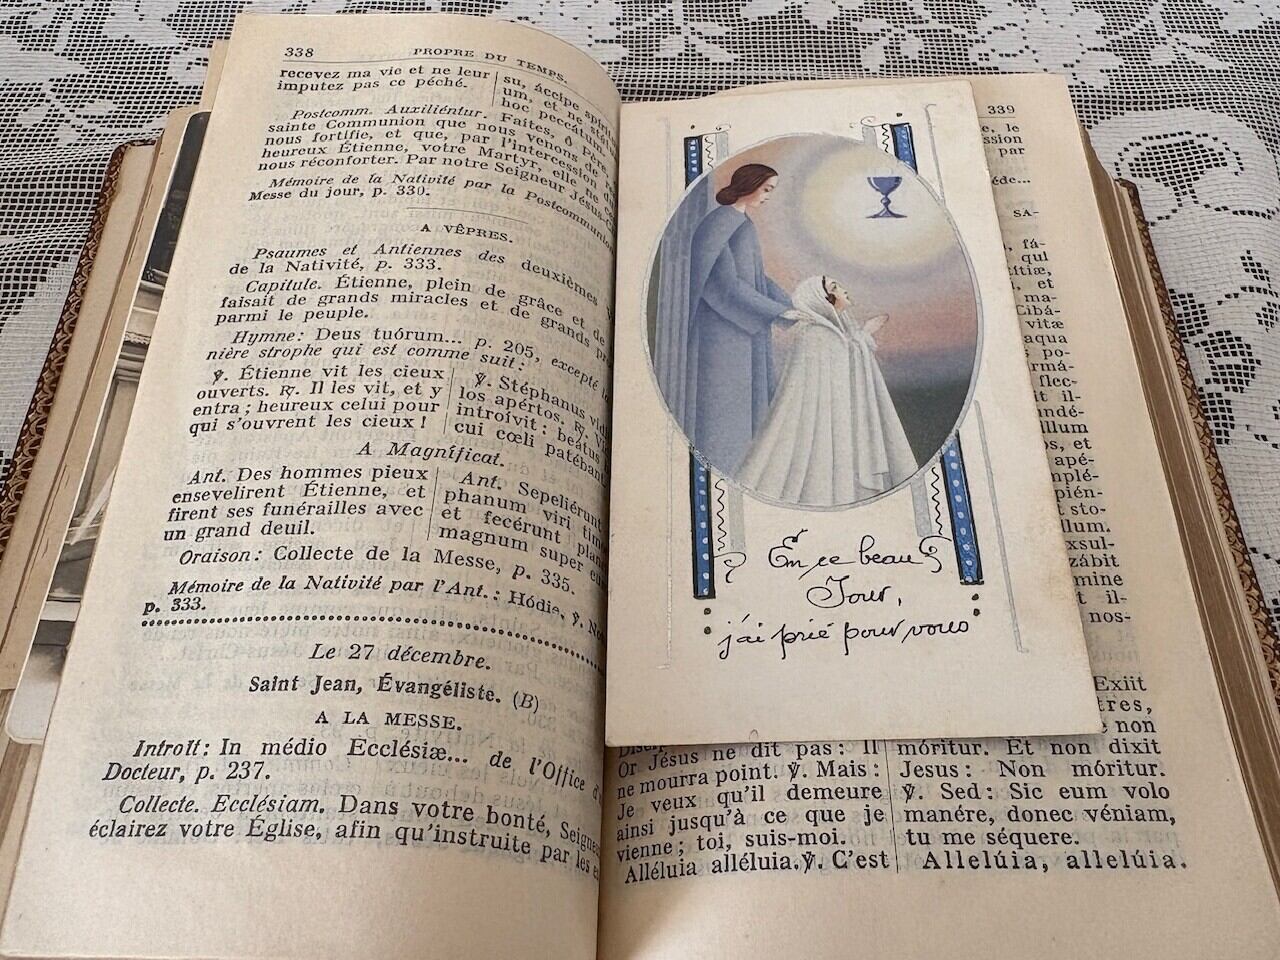 338
PROPRE DU TEMPS.
recevez ma vie et ne leur
imputez pas ce péché.
su, áccipe
um, et ne
hoc peccátum
Postcomm. Auxiliéntur. Faites, ô Père,
sainte Communion que nous venons de
nous fortifie, et que, par l'intercession du
heureux Étienne, votre Martyr, elle
nous réconforter. Par notre Seigneur
Mémoire de la Nativité par la Postcommunion
Messe du jour, p. 330.
A VÊPRES.
Psaumes et Antiennes des deuxièmes
de la Nativité, p. 333.
Capitule. Étienne, plein de grâce et de
faisait de grands miracles et de grands
parmi le peuple.
Hymne: Deus tuórum... p. 205, excepté
nière strophe qui est comme suit:
℣. Étienne vit les cieux
ouverts. ℟. Il les vit, et y
entra; heureux celui pour
qui s'ouvrent les cieux!
℣. Stéphanus
los apértos. ℟.
introívit: beátus
cui cœli
A Magníficat.
Ant. Des hommes pieux
ensevelirent Étienne, et
firent ses funérailles avec
un grand deuil.
Ant. Sepeliérunt
phanum viri
et fecérunt
magnum super
Oraison: Collecte de la Messe, p. 335.
Mémoire de la Nativité par l'Ant.: Hódie,
p. 333.
Le 27 décembre.
Saint Jean, Évangéliste. (B)
A LA MESSE.
Introït: In médio Ecclésiæ... de l'Office
Docteur, p. 237.
Collecte. Ecclésiam. Dans votre bonté,
éclairez votre Église, afin qu'instruite par les
En ce beau
Jour,
j'ai prié pour vous
339
e, le
ssion
par
SA-
, fá-
qui
, et
ma-
Cibá-
vitæ
aqua
po-
flec-
il-
llum
, et
apé-
mplé-
pién-
sto-
llum.
xsul-
zábit
mine
il-
nos-
Exiit
non
Or Jésus ne dit pas: Il
ne mourra point. ℣. Mais:
Je veux qu'il demeure
ainsi jusqu'à ce que je
vienne; toi, suis-moi.
Alléluia alléluia. ℣. C'est
móritur. Et non dixit
Jesus: Non móritur.
℣. Sed: Sic eum volo
manére, donec véniam,
tu me séquere.
Allelúia, allelúia.